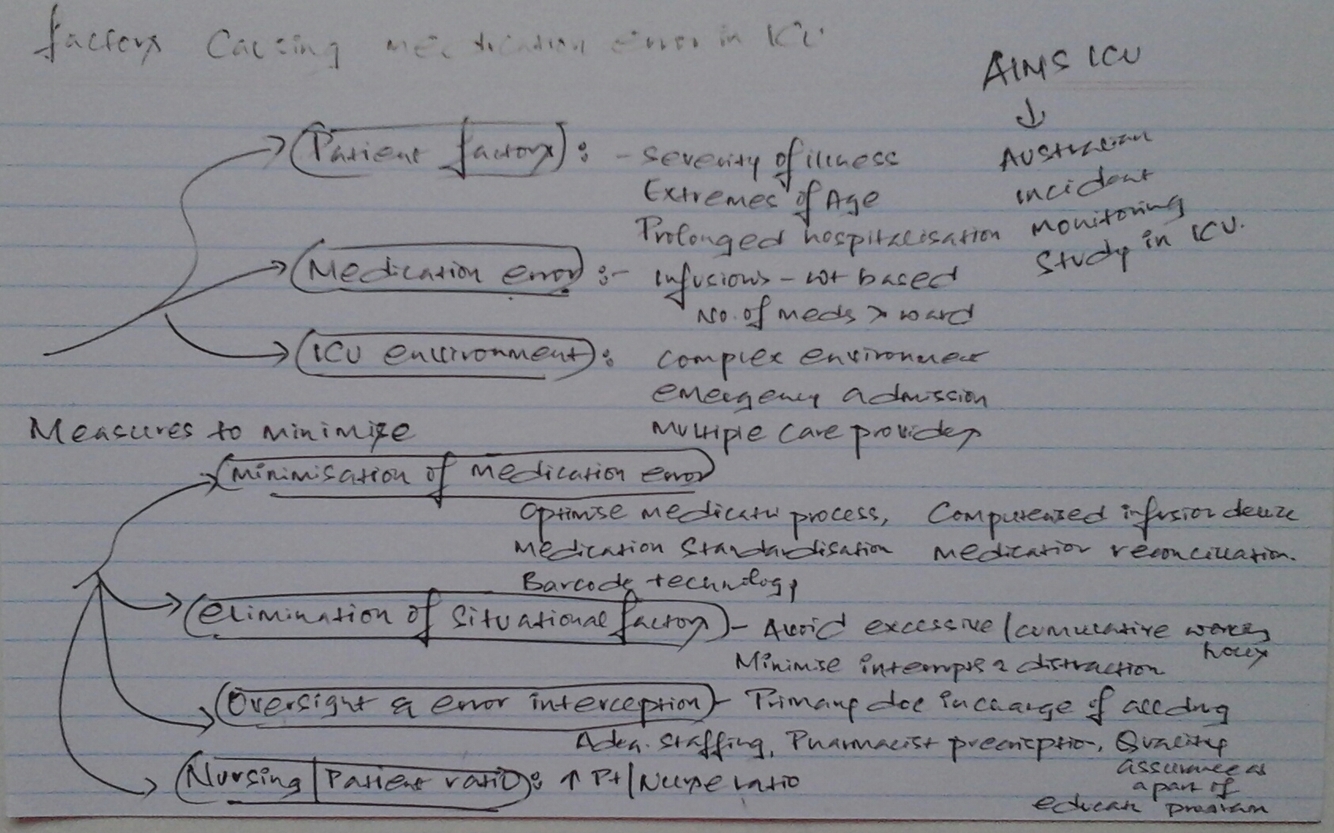 factors causing medication error in ICU
AIMS ICU
Australian
incident
monitoring
Study in ICU.
Patient factors : - severity of illness
Extremes of Age
Prolonged hospitalisation
Medication error :- Infusions - wt based
No. of meds > ward
ICU environment : complex environment
emergency admission
multiple care providers
Measures to minimise
Minimisation of medication error
Optimise medicatn process, Computerised infusion device
Medication Standardisation medication reconcillation.
Barcode technology
elimination of situational factors - Avoid excessive / cumulative working
hours
Minimise interrupts & distraction
Oversight & error interception - Primary doc incharge of all drug
Adeq. staffing, Pharmacist prescription, Quality
assurance as
a part of
educatn program
Nursing / Patient ratio : ↑ Pt / Nurse ratio